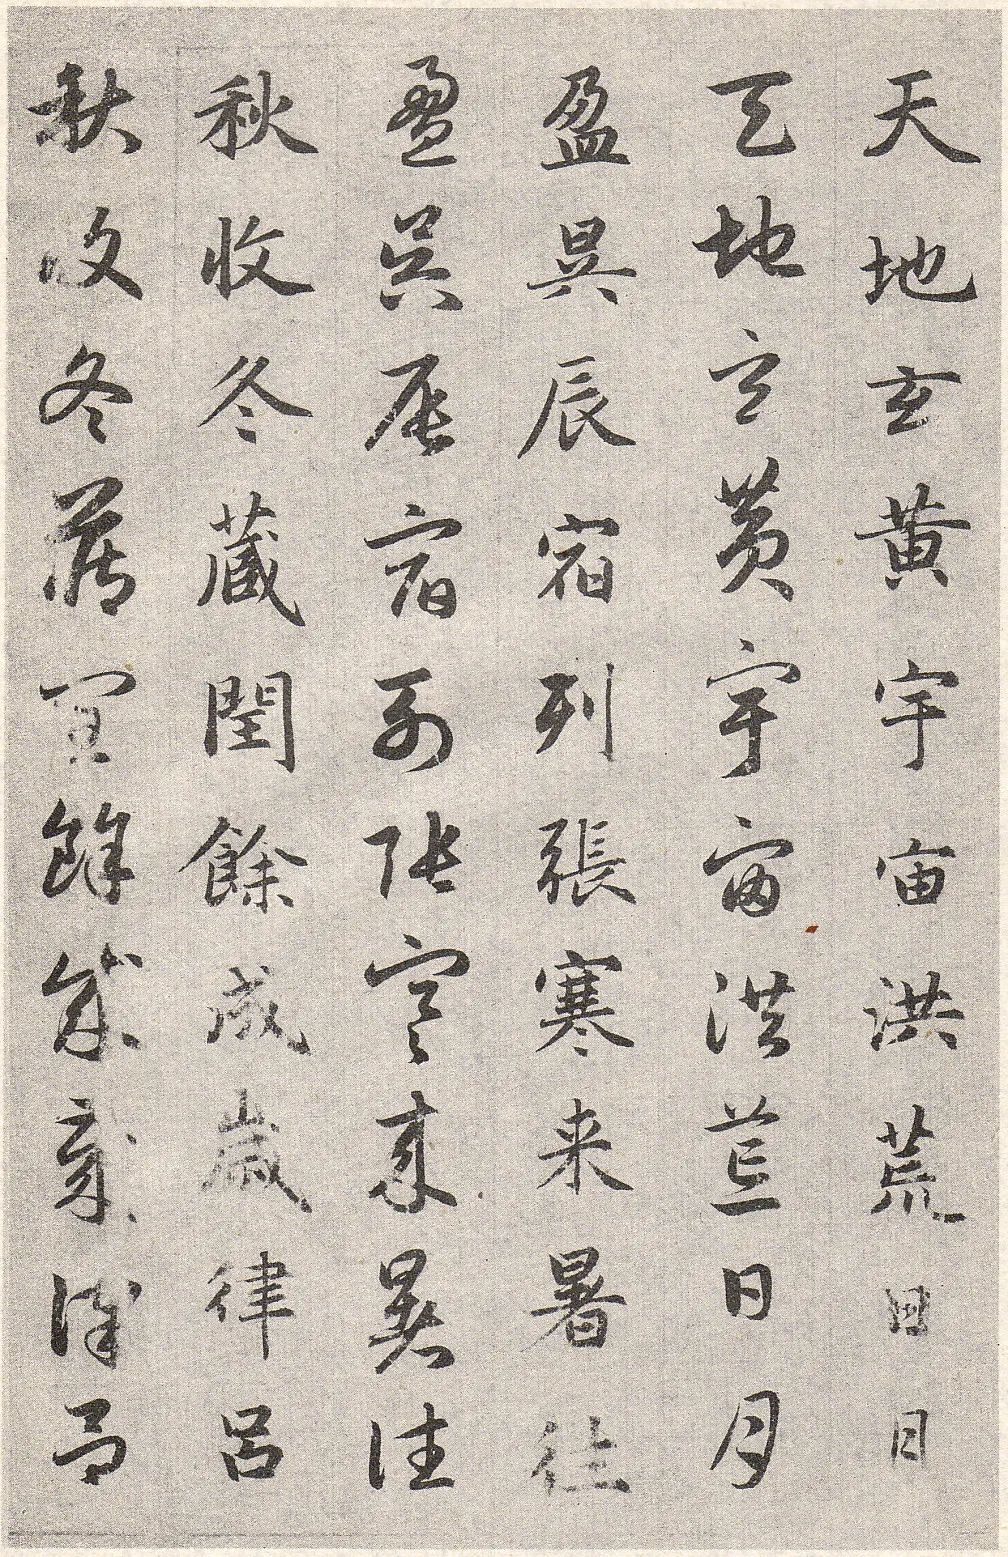 天地玄黃宇宙洪荒日月
天地玄黃宇宙洪荒日月
盈昃辰宿列張寒来暑往
盈昃辰宿列張寒来暑往
秋收冬蔵閏餘成歲律呂
秋收冬蔵閏餘成歲律呂